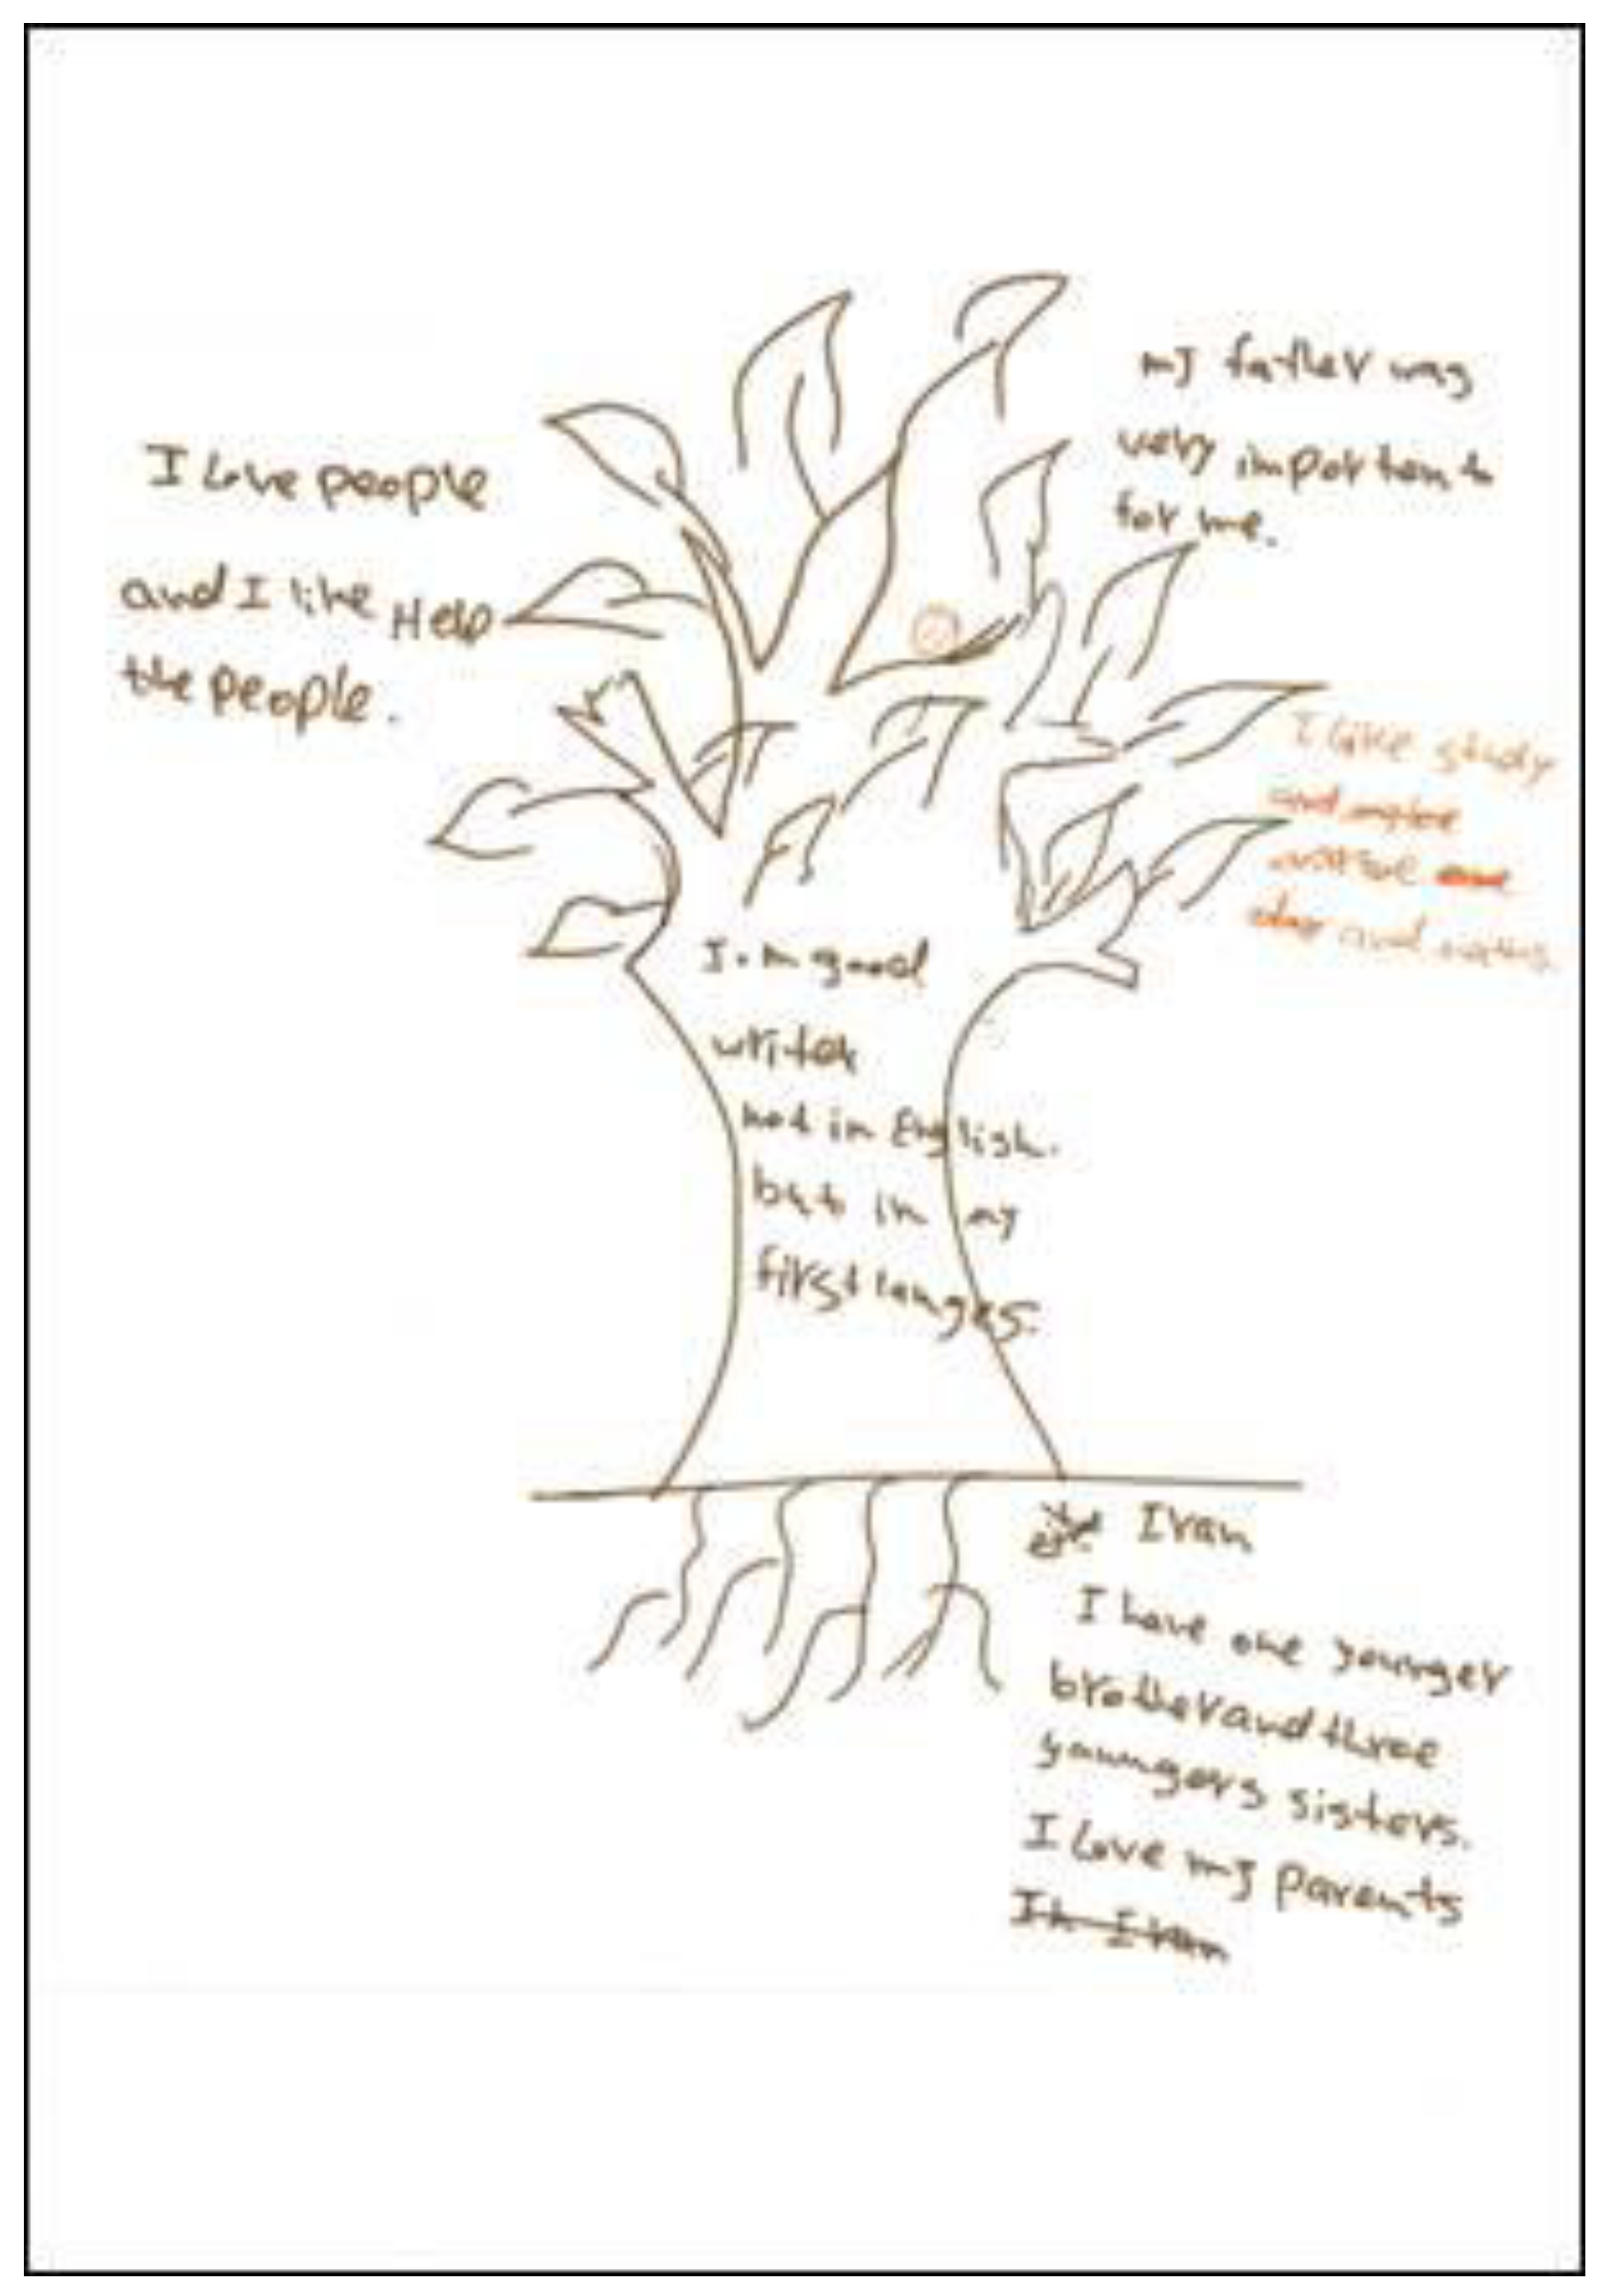 my father was
very importent
for me.
I Love people
and I like Help
the people.
I like study
and
and
I.m good
writer
not in English.
but in my
first langes.
Iran
I have one younger
brother and three
youngers sisters.
I Love my parents
In Iran